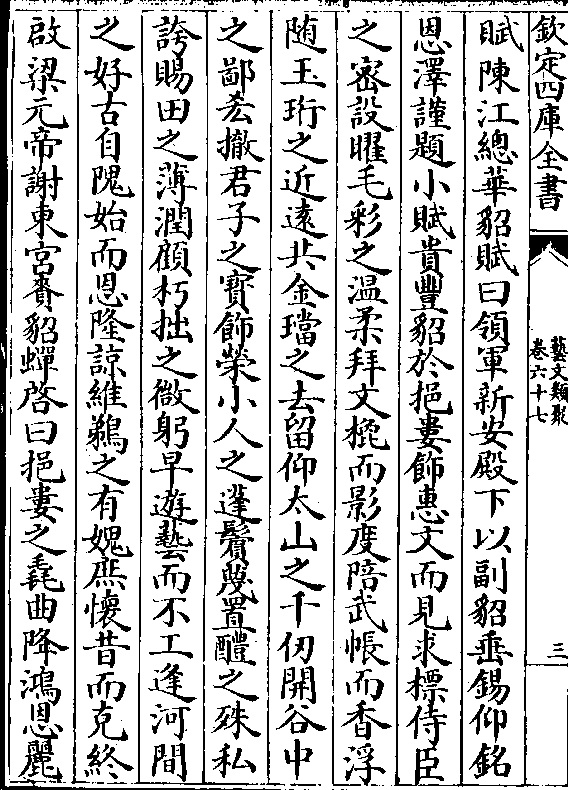 欽定四庫全書
藝文類聚
卷六十七
三
賦陳江總華貂賦曰領軍新安殿下以副貂垂錫仰銘
恩澤謹題小賦貴豐貂於挹婁飾惠文而見求標侍臣
之密設曜毛彩之温柔拜文㮰而影度陪武帳而香浮
随玉珩之近遠共金璫之去留仰太山之千仞開谷中
之鄙吝撤君子之寳飾榮小人之蓬鬢蔑置醴之殊私
誇賜田之薄潤顧朽拙之微躬早遊藝而不工逢河間
之好古自隗始而恩隆諒維鵜之有媿庶懐昔而克終
啟梁元帝謝東宫賚貂蟬啓曰挹婁之毳曲降鴻恩麗